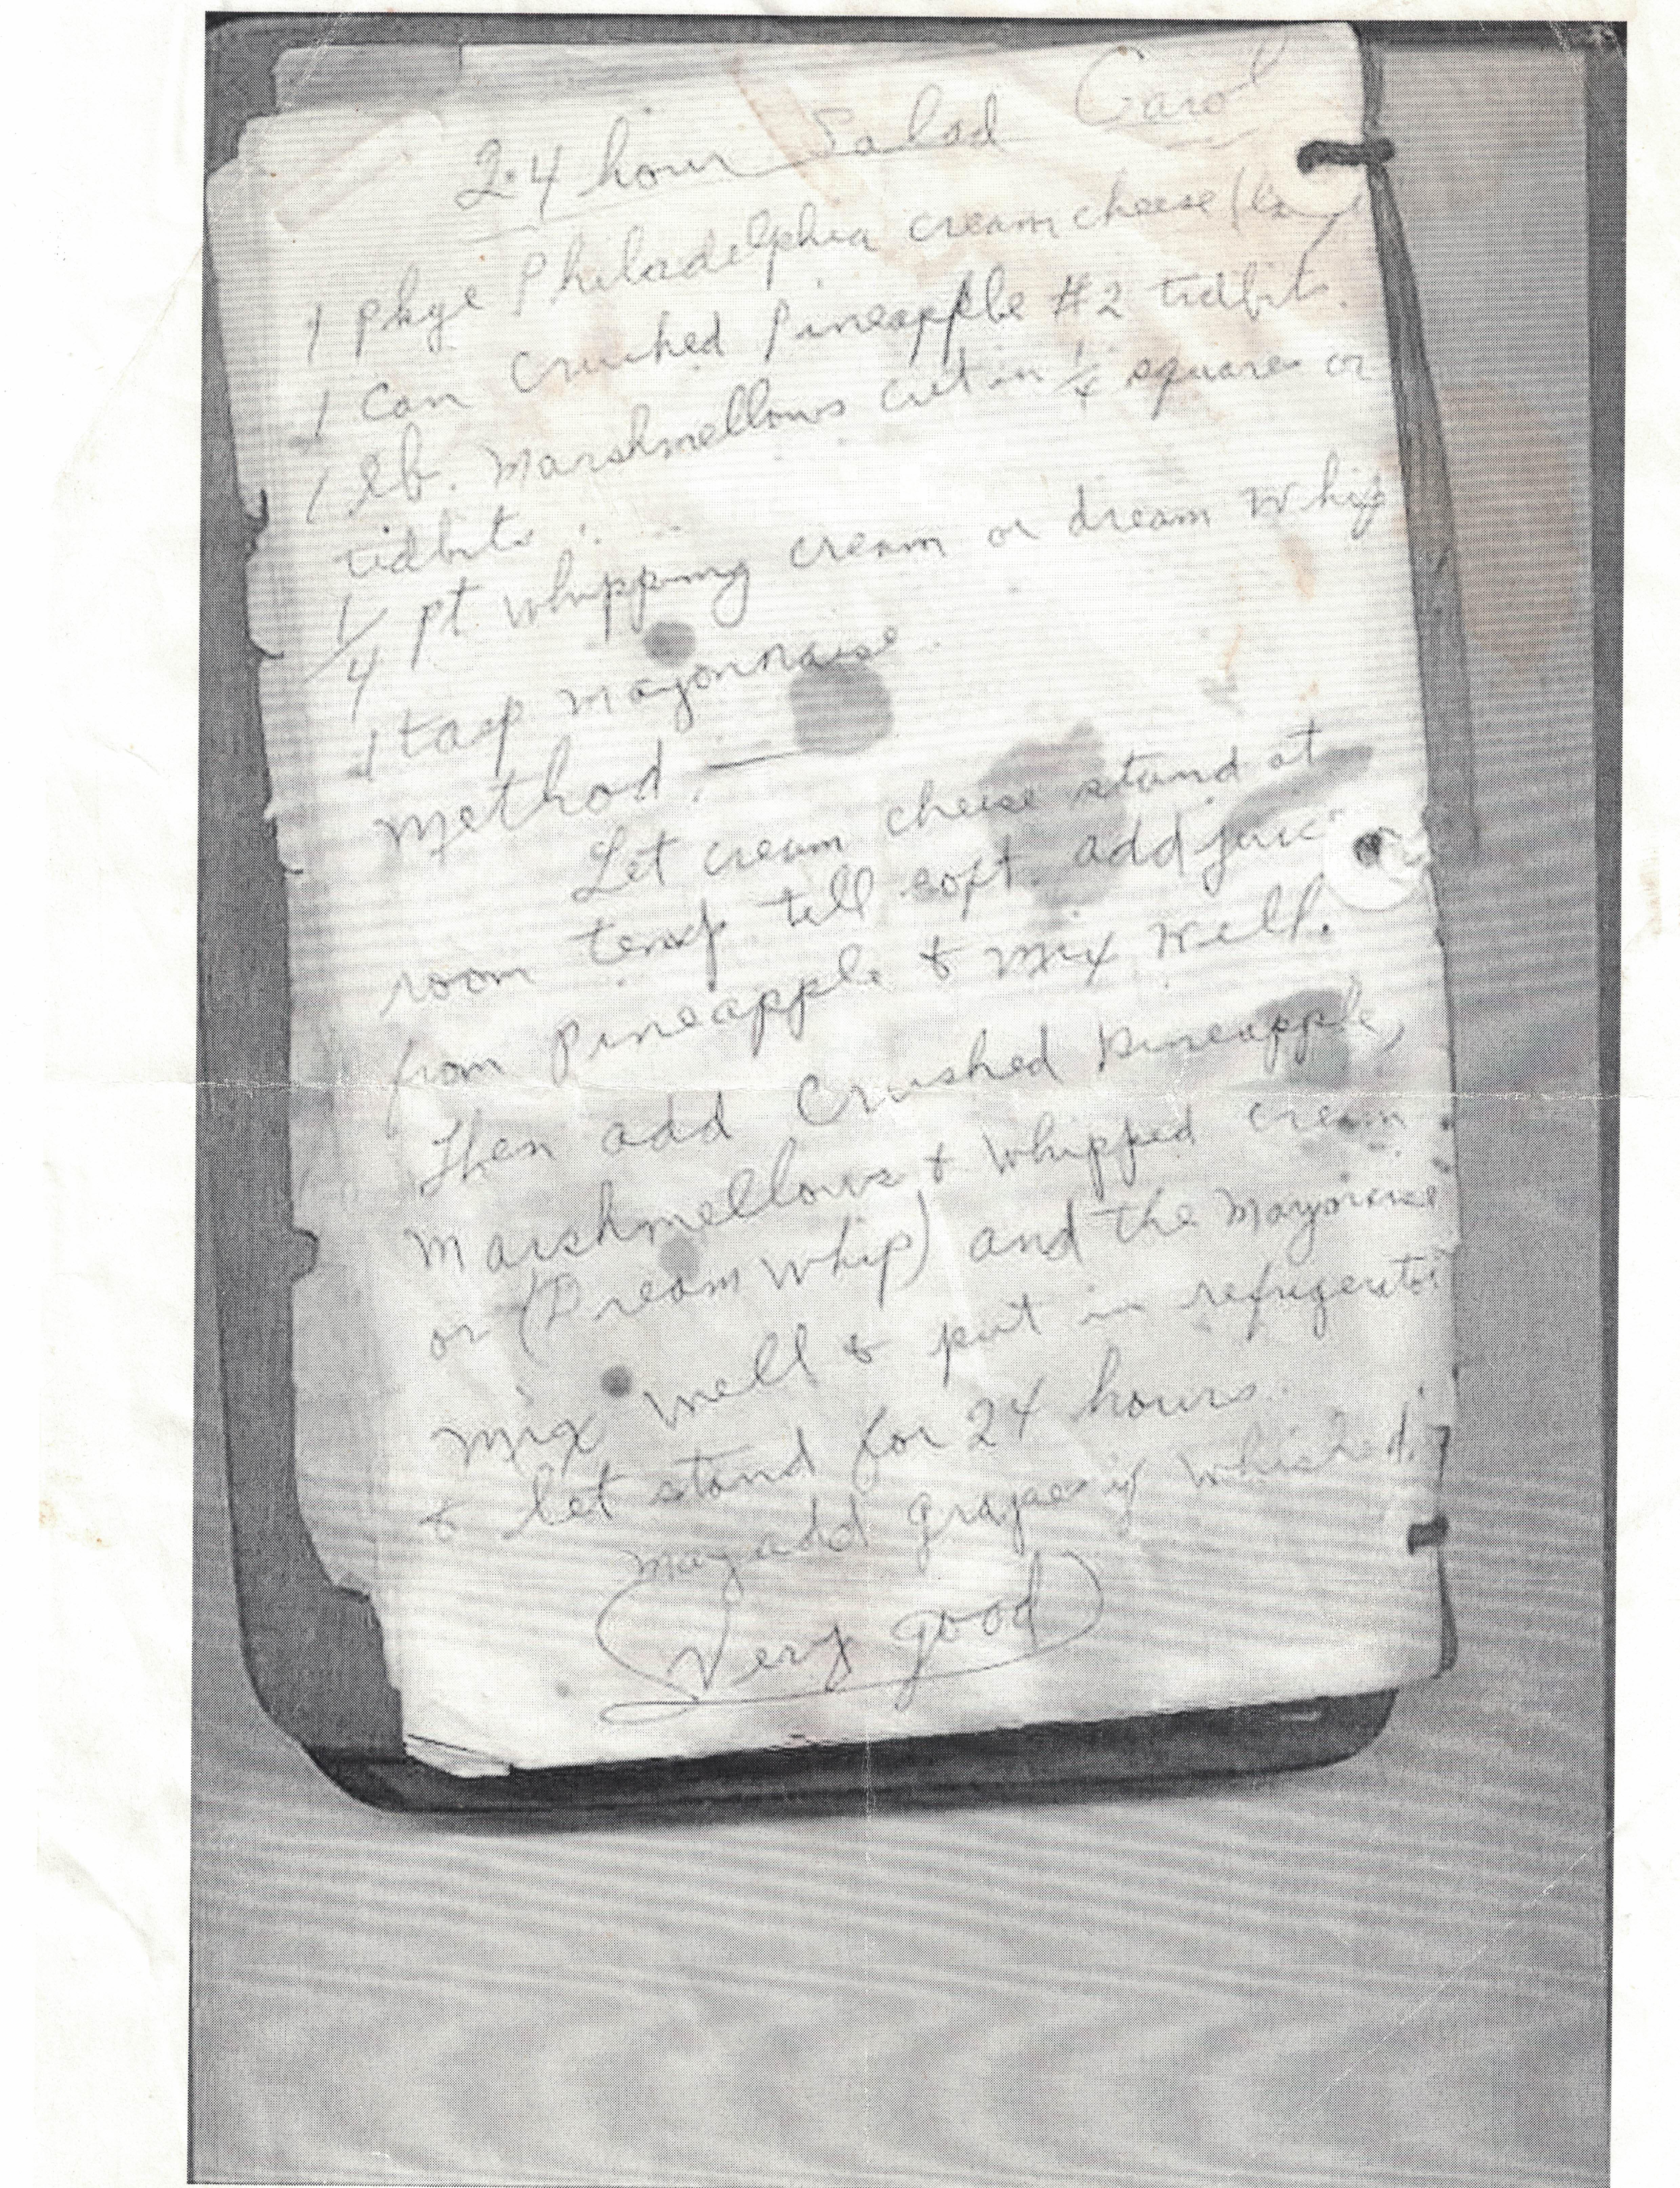 24 hour Salad Carol
1 pkge Philadelphia cream cheese
1 Can crushed Pineapple #2 tidbits.
1 lb. Marshmellows cut in 1/4 squares or
tidbits
1/4 pt whipping cream or dream whip
1 tasp mayonnaise
method. —
Let cream cheese stand at
room temp till soft. add juic
from pineapple & mix well.
Then add Crushed pineapple,
Marshmellows & whipped cream
or (Dream whip) and the
mix well & put in refrigerator
& let stand for 24 hours.
may add grapes if whished.
Very good